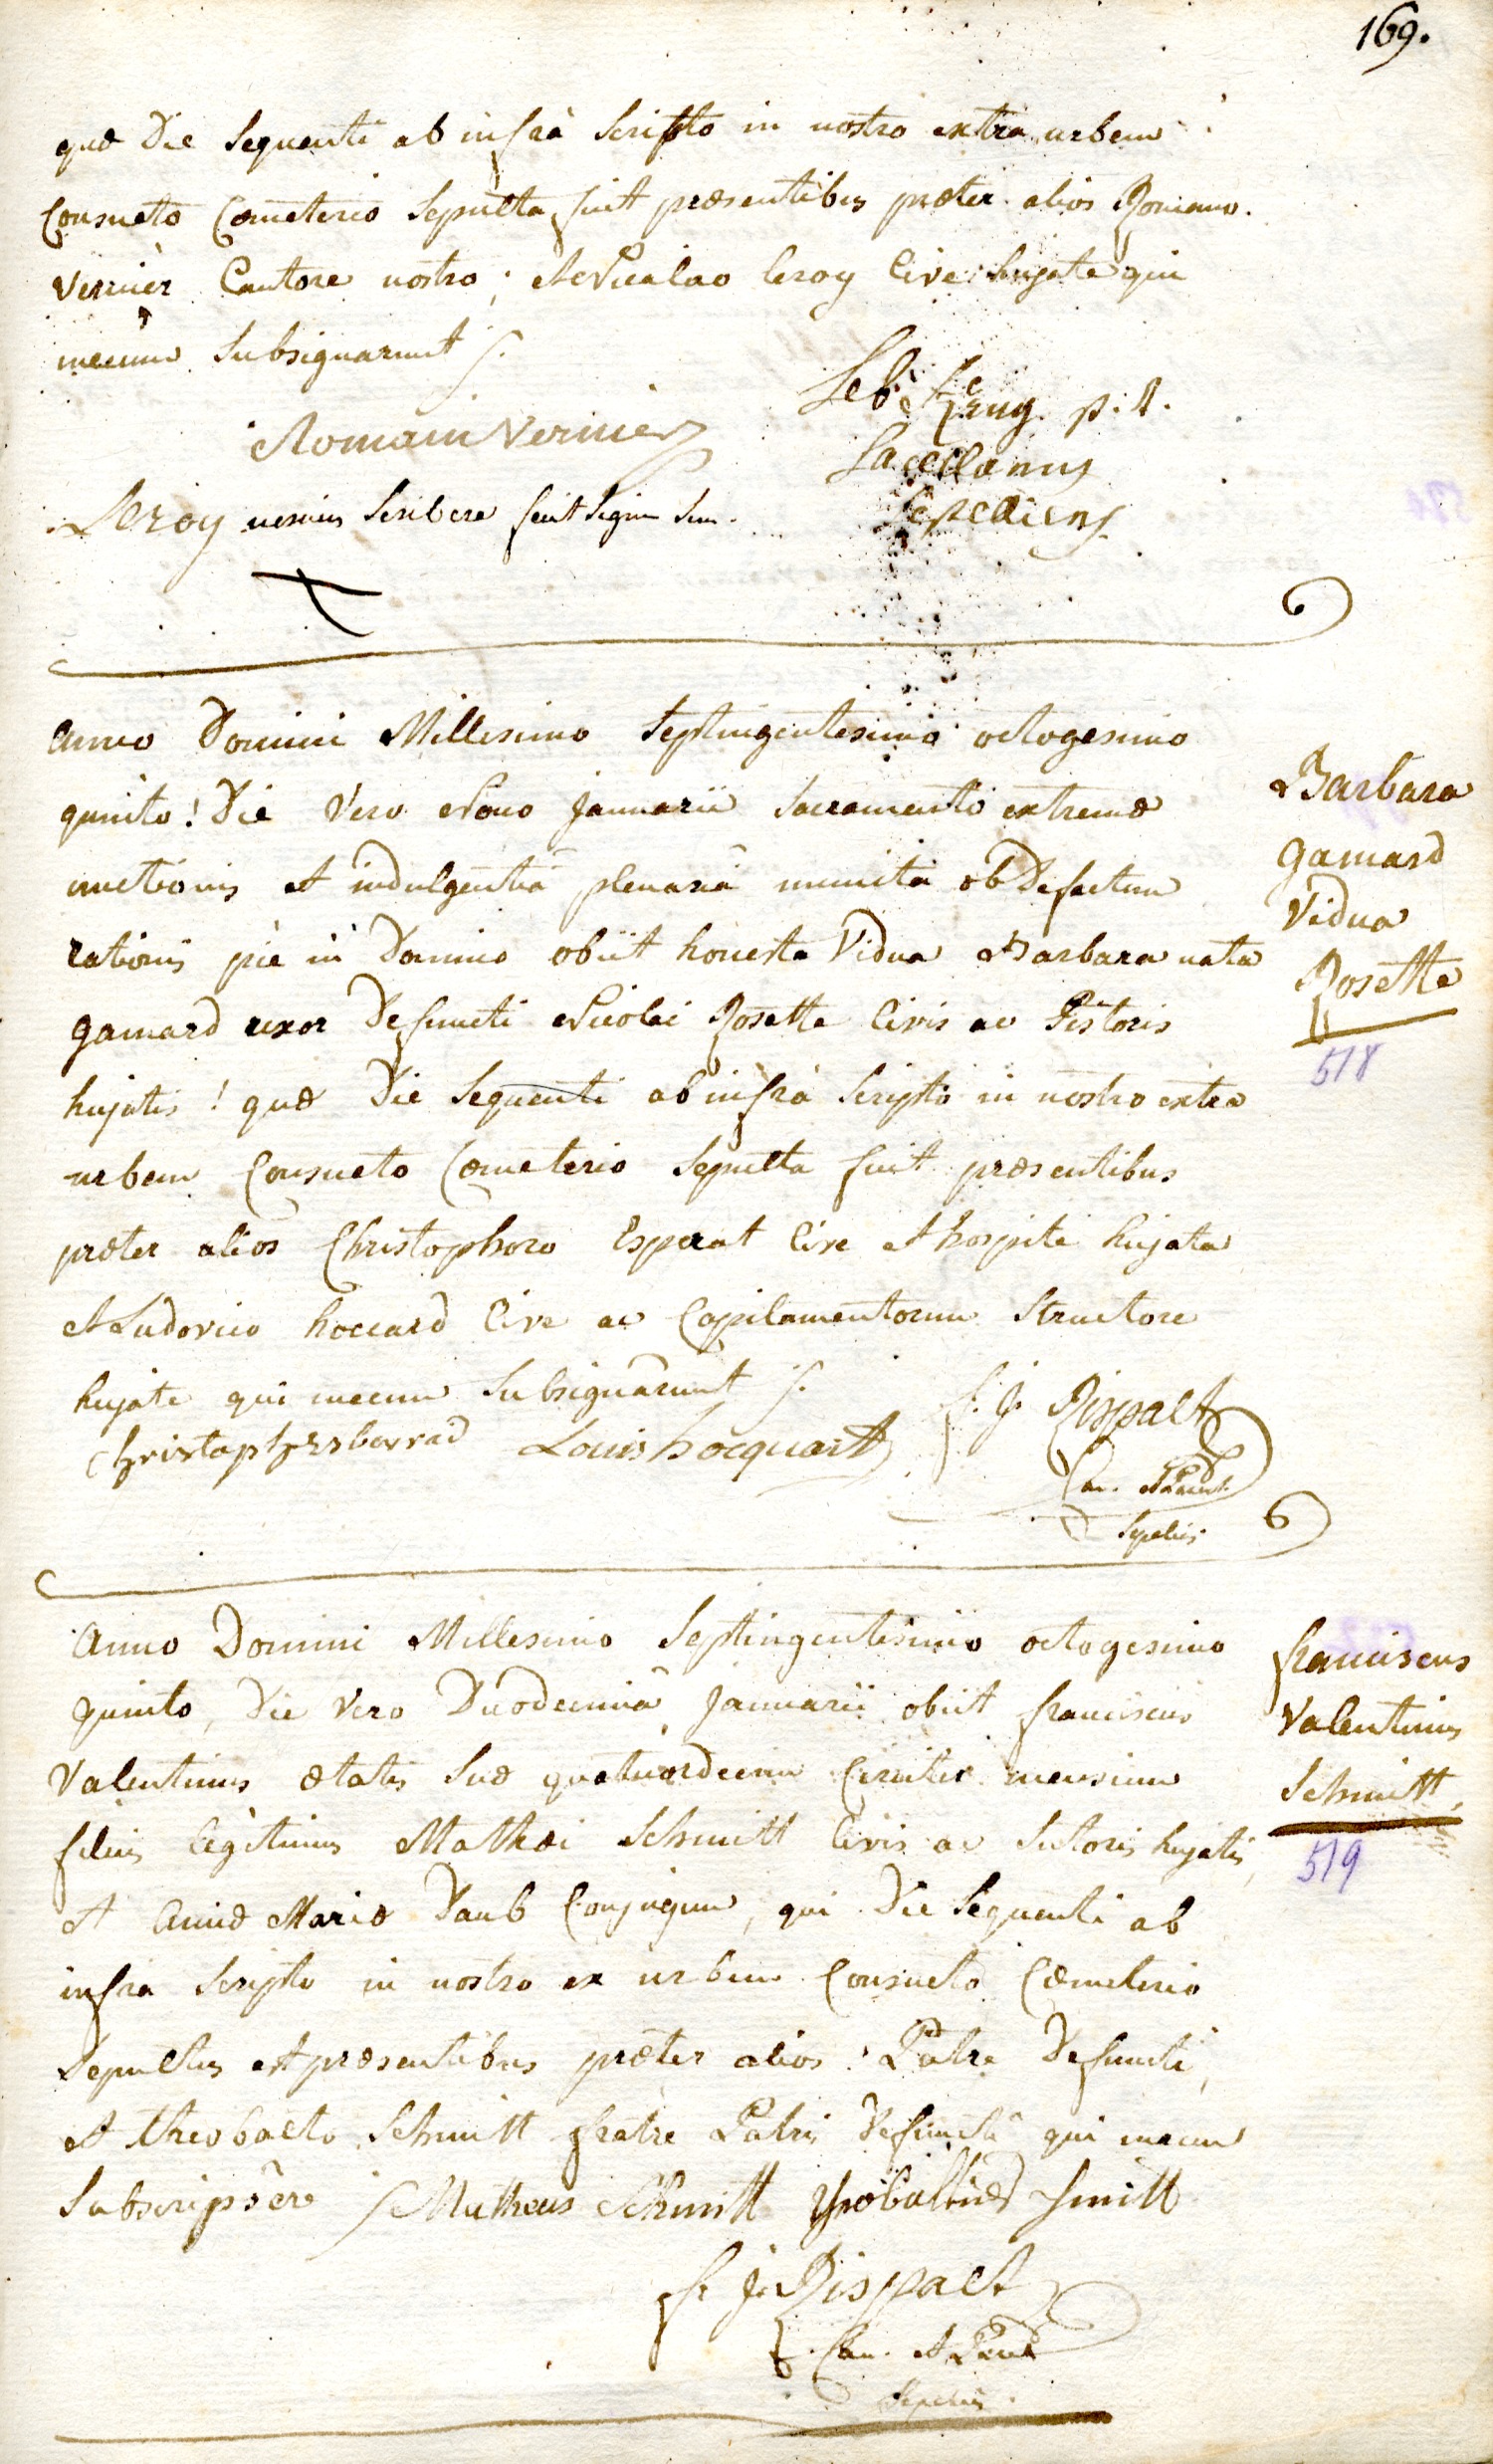 169.
quæ Die Sequenti ab infrà Scripto in nostro extra urbem
Consueto Cœmeterio Sepulta fuit præsentibus præter alios Romano
Vernier Cantore nostro; et Nicolao leroy Cive hujate qui
mecum Subsignarunt
Romain Vernier
Seb. p. t.
Sacellanus
Sepeliens
Leroy nescius Scribere fecit Signum Suum.
Anno Domini Millesimo Septingentesimo octogesimo
quinto! Die Vero Nono Januarii Sacramento extremæ
unctionis et indulgentiâ plenariâ munita ob Defectum
rationis piè in Domino obiit honesta Vidua Barbara nata
gamard uxor Defuncti Nicolai Rosette Civis ac Pistoris
hujatis! quæ Die Sequenti ab infrà Scripto in nostro extra
urbem Consueto Cœmeterio Sepulta fuit præsentibus
præter alios Christophoro Esperat Cive et hospite hujate
et Ludovico hoccard Cive ac Capilamentorum Structore
hujate qui mecum Subsignârunt
Barbara
gamard
Vidua
Rosette
518
Christoph Louis hocquart
f. J. Rispalt
Can.
Sepeliens
Anno Domini Millesimo Septingentesimo octogesimo
quinto, Die Vero Duodecimâ Januarii obiit franciscus
Valentinus ætatis Suæ quatuordecim Circiter mensium
filius legitimus Mathæi Schmitt Civis ac Sutoris hujatis,
et Annæ Mariæ Daub Conjugum, qui Die Sequenti ab
infra Scripto in nostro ex urbem Consueto Cœmeterio
Sepultus est præsentibus præter alios Patre Defuncti,
et theobaldo Schmitt fratre Patris Defuncti qui mecum
Subscripsêre Matheus Schmitt
franciscus
Valentinus
Schmitt,
519
f. J. Rispalt
Can.
Sepeliens